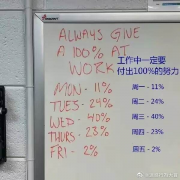 ALWAYS GIVE
A 100% AT
WORK
工作中一定要
付出100%的努力
MON: - 11%
周一 - 11%
TUES: - 24%
周二 - 24%
WED: - 40%
周三 - 40%
THURS: - 23%
周四 - 23%
FRI: - 2%
周五 - 2%